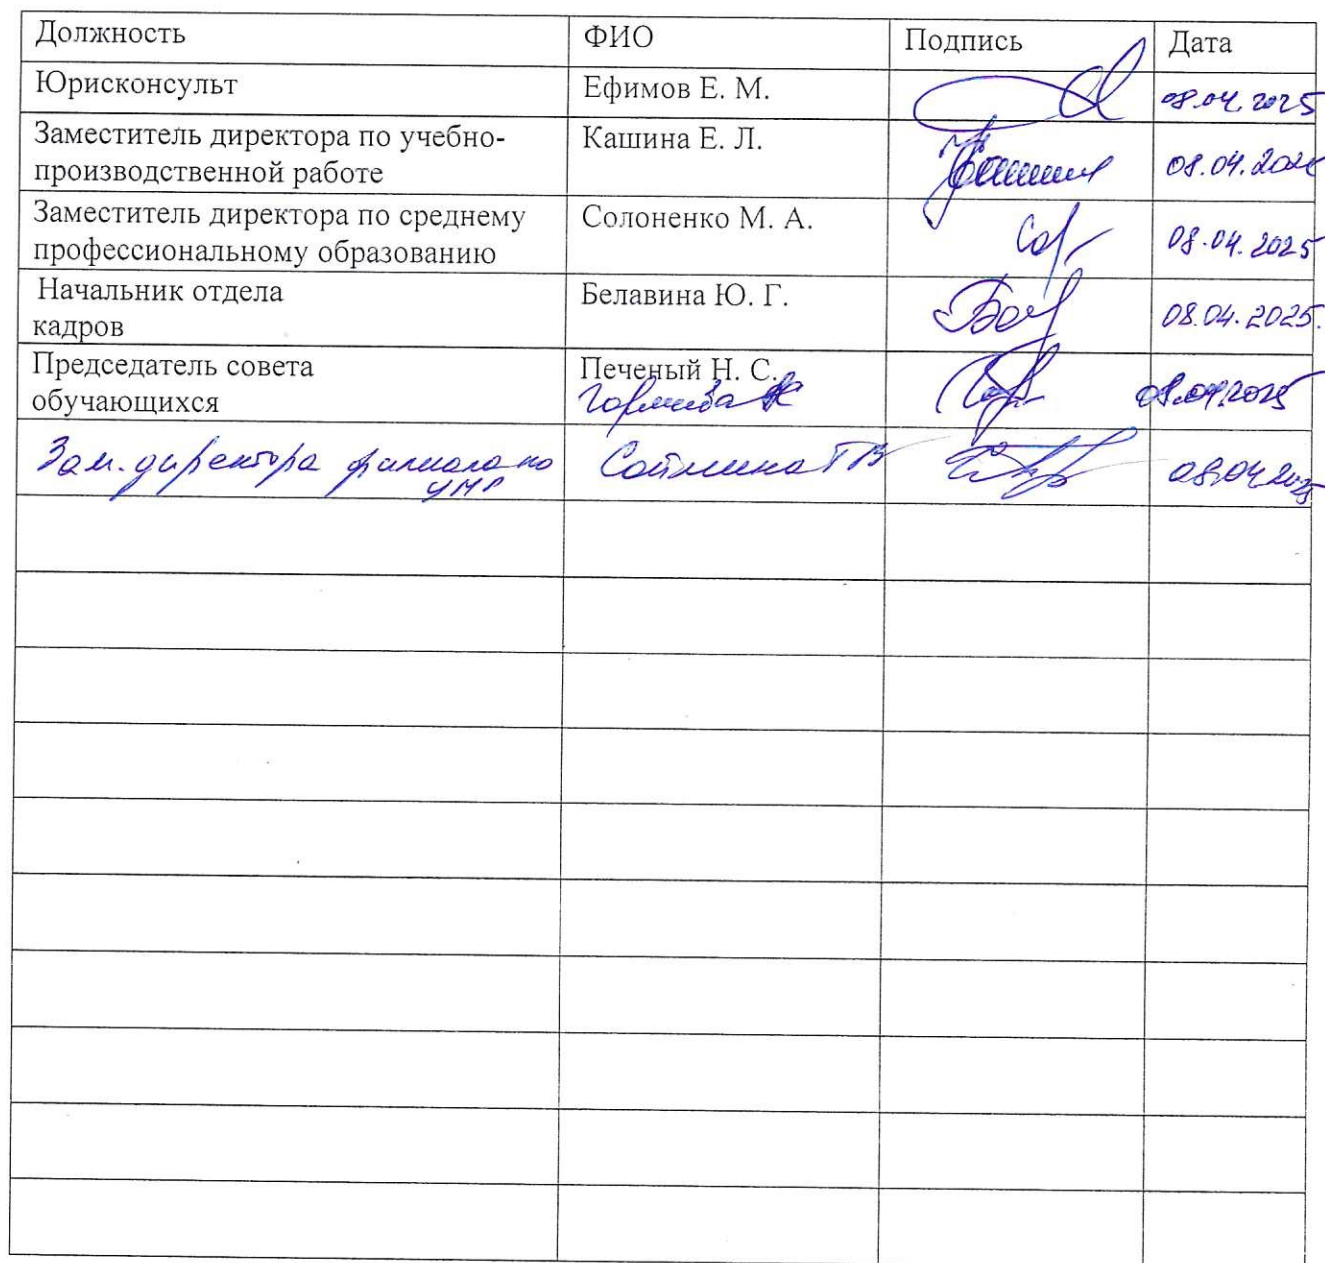 Должность ФИО Подпись Дата
Юрисконсульт Ефимов Е. М. 08.04.2025
Заместитель директора по учебно-
производственной работе
Кашина Е. Л. 08.04.2025
Заместитель директора по среднему
профессиональному образованию
Солоненко М. А. 08.04.2025
Начальник отдела
кадров
Белавина Ю. Г. 08.04.2025.
Председатель совета
обучающихся
Печеный Н. С.
08.04.2025
Зам. директора филиала по
УМР
08.04.2025